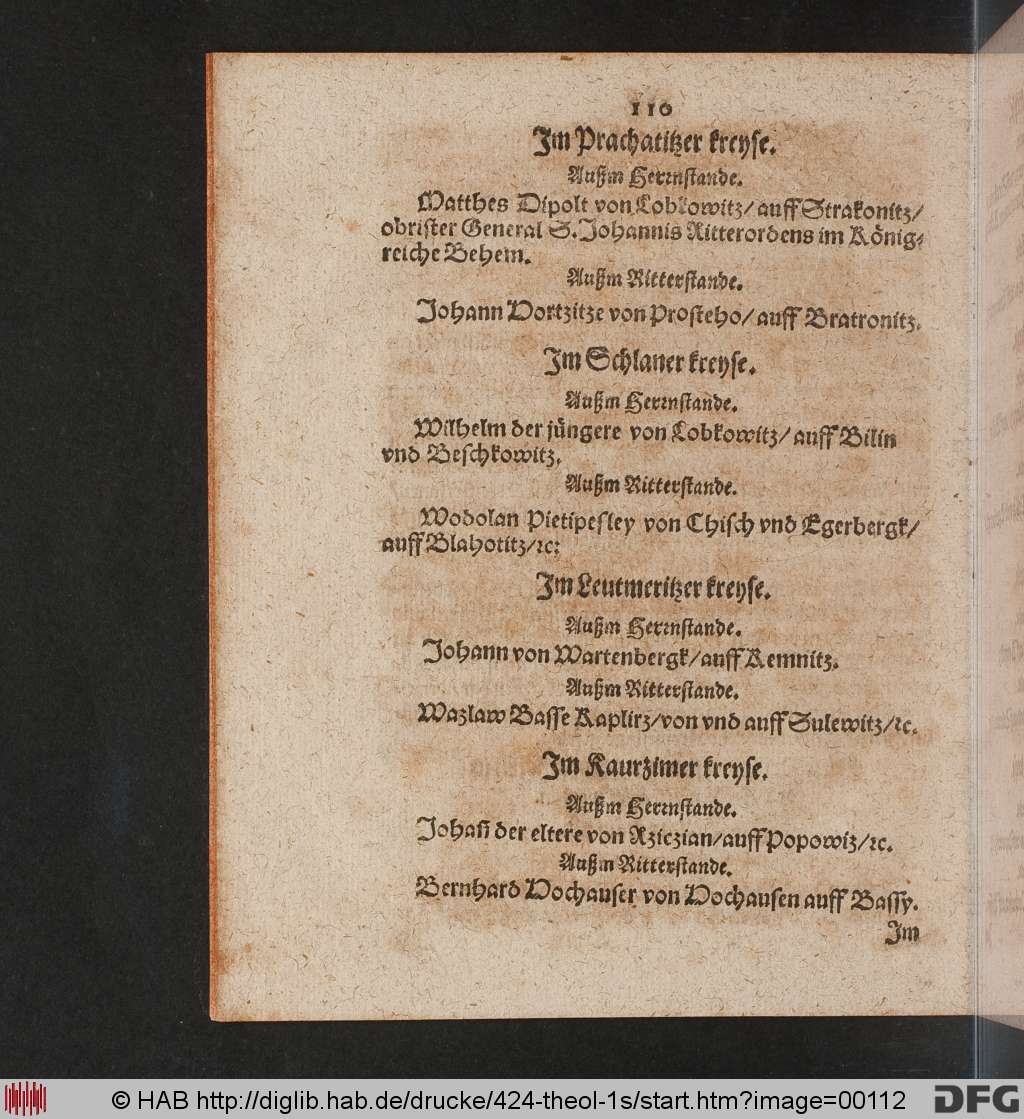 110
Im Prachatitzer kreyse.
Außm Herrnstande.
Matthes Dipolt von Lobkowitz/ auff Strakonitz/
obrister General S. Johannis Ritterordens im König⸗
reiche Behem.
Außm Ritterstande.
Johann Vortzitze von Prosteho/ auff Bratronitz.
Im Schlaner kreyse.
Außm Herrnstande.
Wilhelm der jüngere von Lobkowitz/ auff Bilin
vnd Beschkowitz.
Außm Ritterstande.
Wodolan Pietipesley von Chisch vnd Egerbergk/
auff Blahotitz/ꝛc:
Im Leutmeritzer kreyse.
Außm Herrnstande.
Johann von Wartenbergk/auff Kemnitz.
Außm Ritterstande.
Wazlaw Basse Kaplirz/von vnd auff Sulewitz/ꝛc.
Im Kaurzimer kreyse.
Außm Herrnstande.
Johañ der eltere von Rziczian/auff Popowiz/ꝛc.
Außm Ritterstande.
Bernhard Vochauser von Vochausen auff Bassy.
Im
© HAB http://diglib.hab.de/drucke/424-theol-1s/start.htm?image=00112
DFG